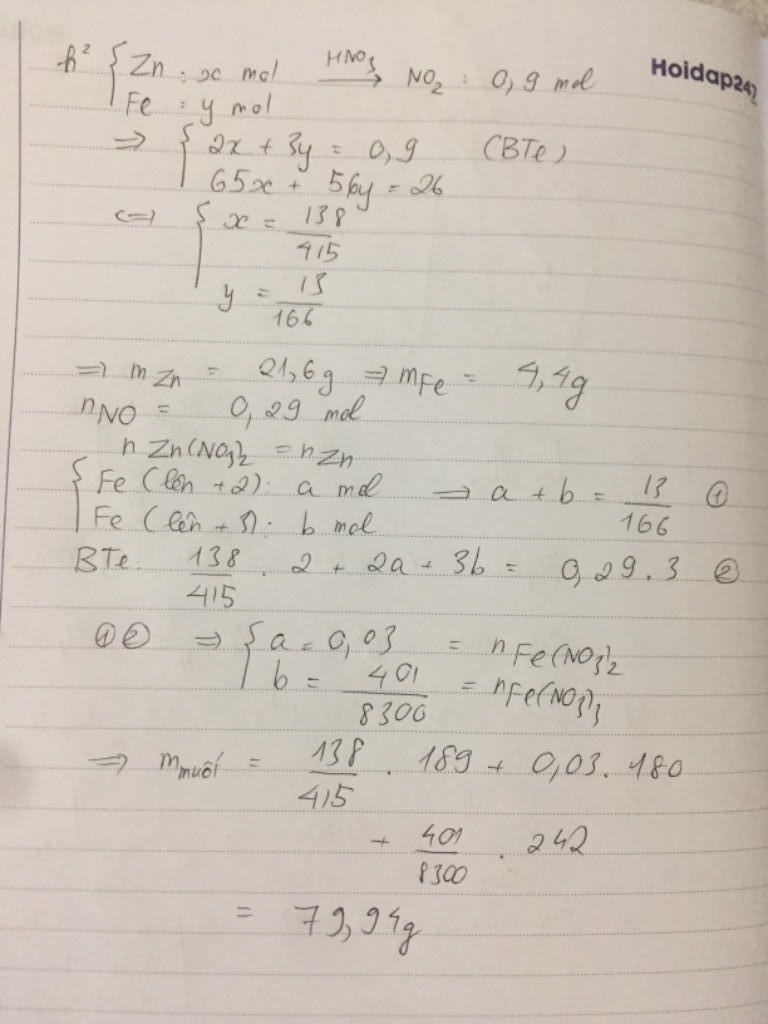 Hoidap247
h² { Zn : x mol  HNO₃ →  NO₂ : 0,9 mol
Fe : y mol
⇒ { 2x + 3y = 0,9 (BTe)
65x + 56y = 26
⇔ { x = 138/415
y = 13/166
⇒ m Zn = 21,6g ⇒ m Fe = 4,4g
n NO = 0,29 mol
n Zn(NO₃)₂ = n Zn
{ Fe (lên +2): a mol ⇒ a + b = 13/166 ①
Fe (lên +3): b mol
BTe: 138/415 . 2 + 2a + 3b = 0,29.3 ②
①② ⇒ { a = 0,03 = n Fe(NO₃)₂
b = 401/8300 = n Fe(NO₃)₃
⇒ m muối = 138/415 . 189 + 0,03. 180
+ 401/8300 . 242
= 79,94g